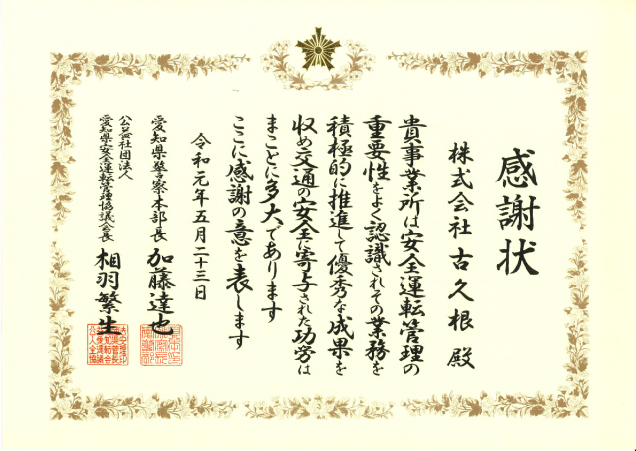 感謝状
株式会社 古久根 殿
貴事業所は安全運転管理の
重要性をよく認識されその業務を
積極的に推進して優秀な成果を
収め交通の安全に寄与された功労は
まことに多大であります
ここに感謝の意を表します
令和元年五月二十三日
愛知県警察本部長 加藤達也
公益社団法人
愛知県安全運転管理協議会長 相羽繁生